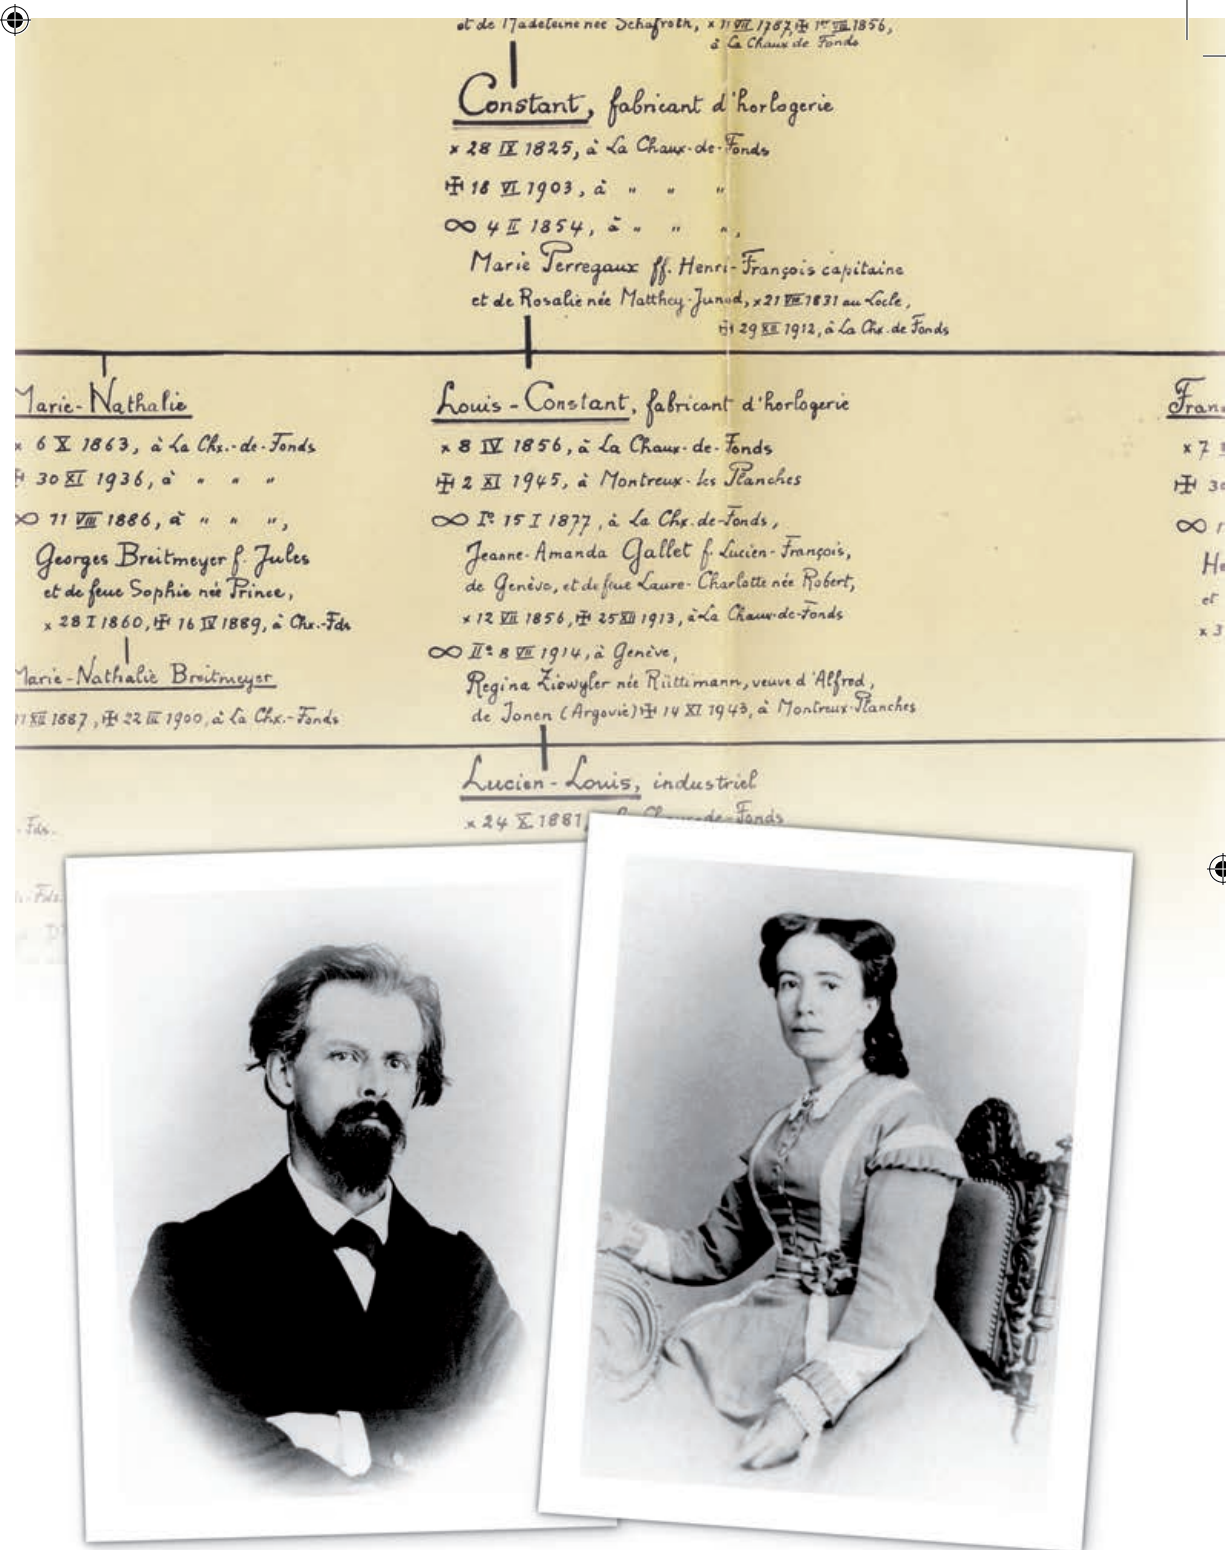 et de Madeleine née Schafroth, × 11 VII 1787, ✠ 1er VIII 1856,
à La Chaux de Fonds
Constant, fabricant d'horlogerie
× 28 IX 1825, à La Chaux-de-Fonds
✠ 18 VI 1903, à " " "
∞ 4 II 1854, à " " ",
Marie Perregaux ff. Henri-François capitaine
et de Rosalie née Matthey-Junod, × 21 VIII 1831 au Locle,
✠ 29 XII 1912, à La Chx. de Fonds
Marie-Nathalie
× 6 X 1863, à La Chx.-de-Fonds
✠ 30 XI 1936, à " " "
∞ 11 VIII 1886, à " " ",
Georges Breitmeyer f. Jules
et de feue Sophie née Prince,
× 28 I 1860, ✠ 16 IV 1889, à Chx.-Fds
Marie-Nathalie Breitmeyer
11 XII 1887, ✠ 22 III 1900, à La Chx.-Fonds
Louis-Constant, fabricant d'horlogerie
× 8 IV 1856, à La Chaux-de-Fonds
✠ 2 XI 1945, à Montreux-les Planches
∞ I° 15 I 1877, à La Chx.de-Fonds,
Jeanne-Amanda Gallet f. Lucien-François,
de Genève, et de feue Laure-Charlotte née Robert,
× 12 VII 1856, ✠ 25 XII 1913, à La Chaux-de-Fonds
∞ II° 8 VII 1914, à Genève,
Regina Ziowyler née Rüttimann, veuve d'Alfred,
de Jonen (Argovie) ✠ 14 XI 1943, à Montreux-Planches
Fran
× 7
✠ 30
∞ 1
He
et
× 3
Lucien-Louis, industriel
× 24 X 1881, Chaux-de-Fonds
-Fds.
-Fds.